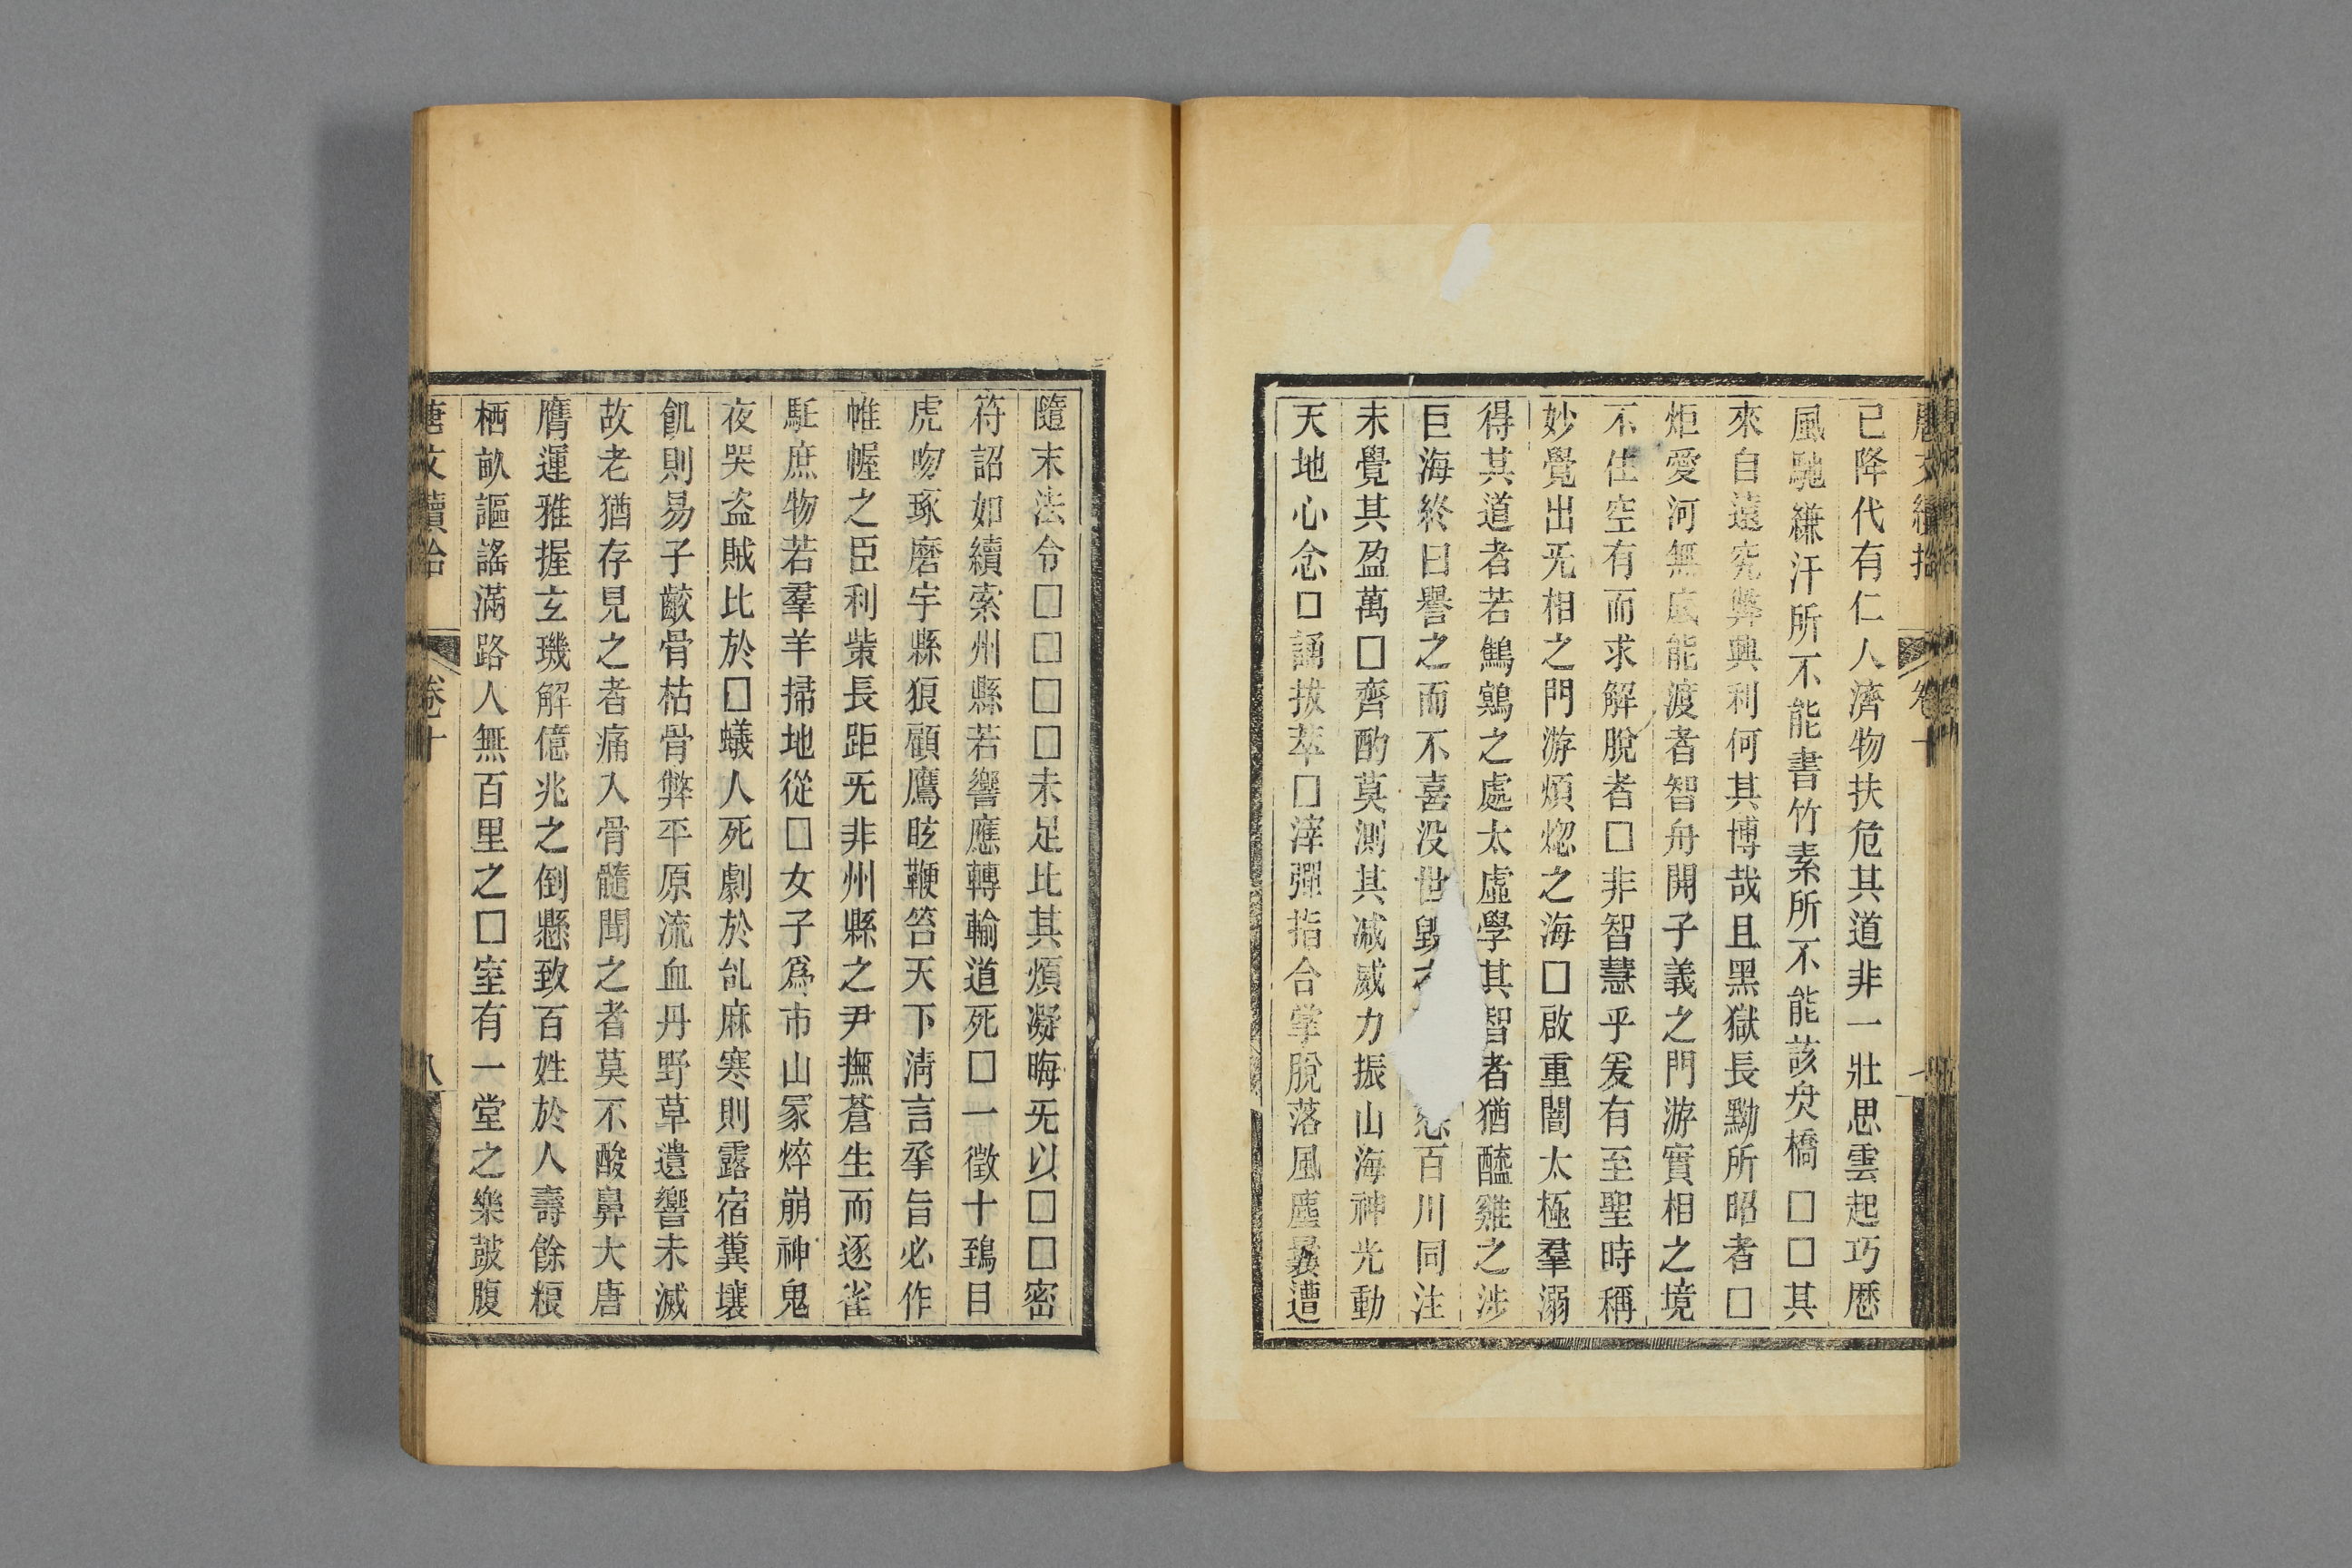 唐文續拾 卷十
已降代有仁人濟物扶危其道非一壯思雲起巧歷
風馳縑汗所不能書竹素所不能該炎橋□□其
來自遠究弊興利何其博哉且黑獄長黝所昭者□
炬愛河無底能渡者智舟開子義之門游實相之境
不住空有而求解脫者□非智慧乎爰有至聖時稱
妙覺出旡相之門游煩惚之海□啟重闇太極羣溺
得其道者若鷦鷯之處太虛學其智者猶醯雞之涉
巨海終日譽之而不喜没世毀百川同注
未覺其盈萬□齊酌莫測其減威力振山海神光動
天地心念□誦拔萃□滓彈指合掌脫落風塵曩遭
隨末法令□□□□未足比其煩凝晦旡以□□密
符詔如續索州縣若響應轉輸道死□一徵十鵄目
虎吻琢磨宇縣狼顧鷹眩鞭笞天下淸言承旨必作
帷幄之臣利柴長距旡非州縣之尹撫蒼生而逐雀
駈庶物若羣羊掃地從□女子爲市山冢焠崩神鬼
夜哭盗賊比於□蟻人死劇於乱麻寒則露宿糞壤
飢則易子齩骨枯骨弊平原流血丹野草遺響未滅
故老猶存見之者痛入骨髓聞之者莫不酸鼻大唐
膺運雅握玄璣解億兆之倒懸致百姓於人壽餘粮
栖畝謳謠滿路人無百里之□室有一堂之樂鼓腹
唐文續拾 卷十 八